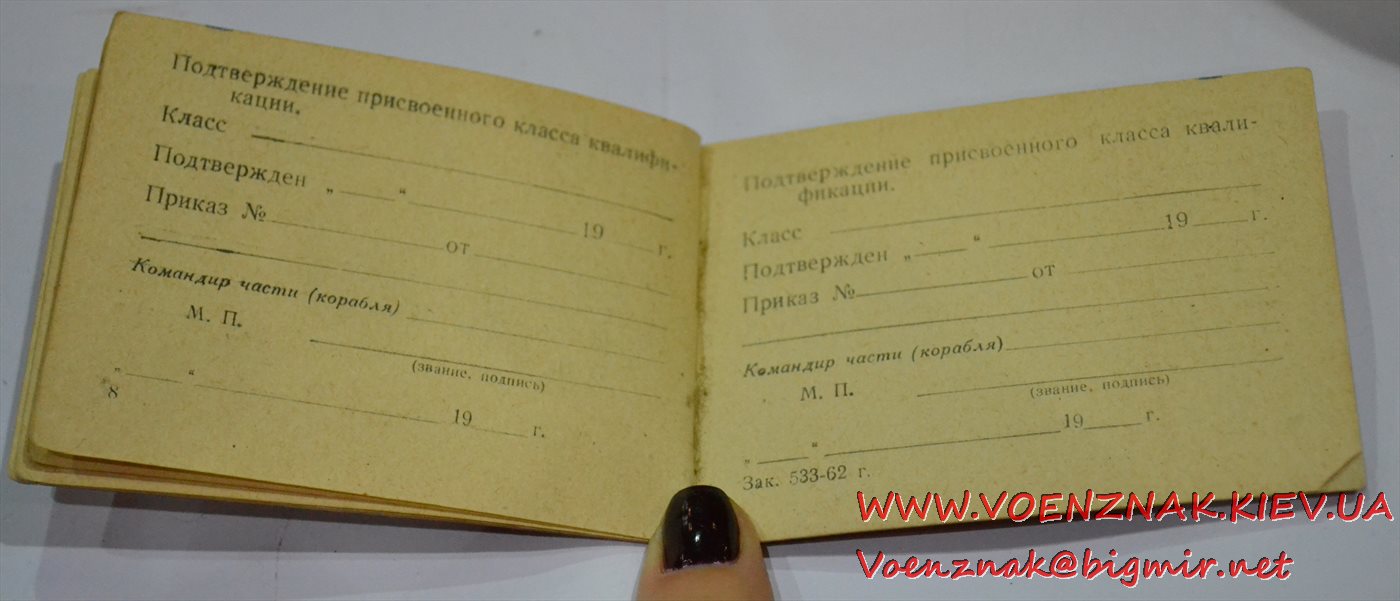 Подтверждение присвоенного класса квалифи-
кации.
Класс
Подтвержден „ “ 19 г.
Приказ № от
Командир части (корабля)
М. П.
(звание, подпись)
„ “ 19 г.
8
Подтверждение присвоенного класса квали-
фикации.
Класс
Подтвержден „ “ 19 г.
Приказ № от
Командир части (корабля)
М. П.
(звание, подпись)
„ “ 19 г.
Зак. 533-62 г.
WWW.VOENZNAK.KIEV.UA
Voenznak@bigmir.net